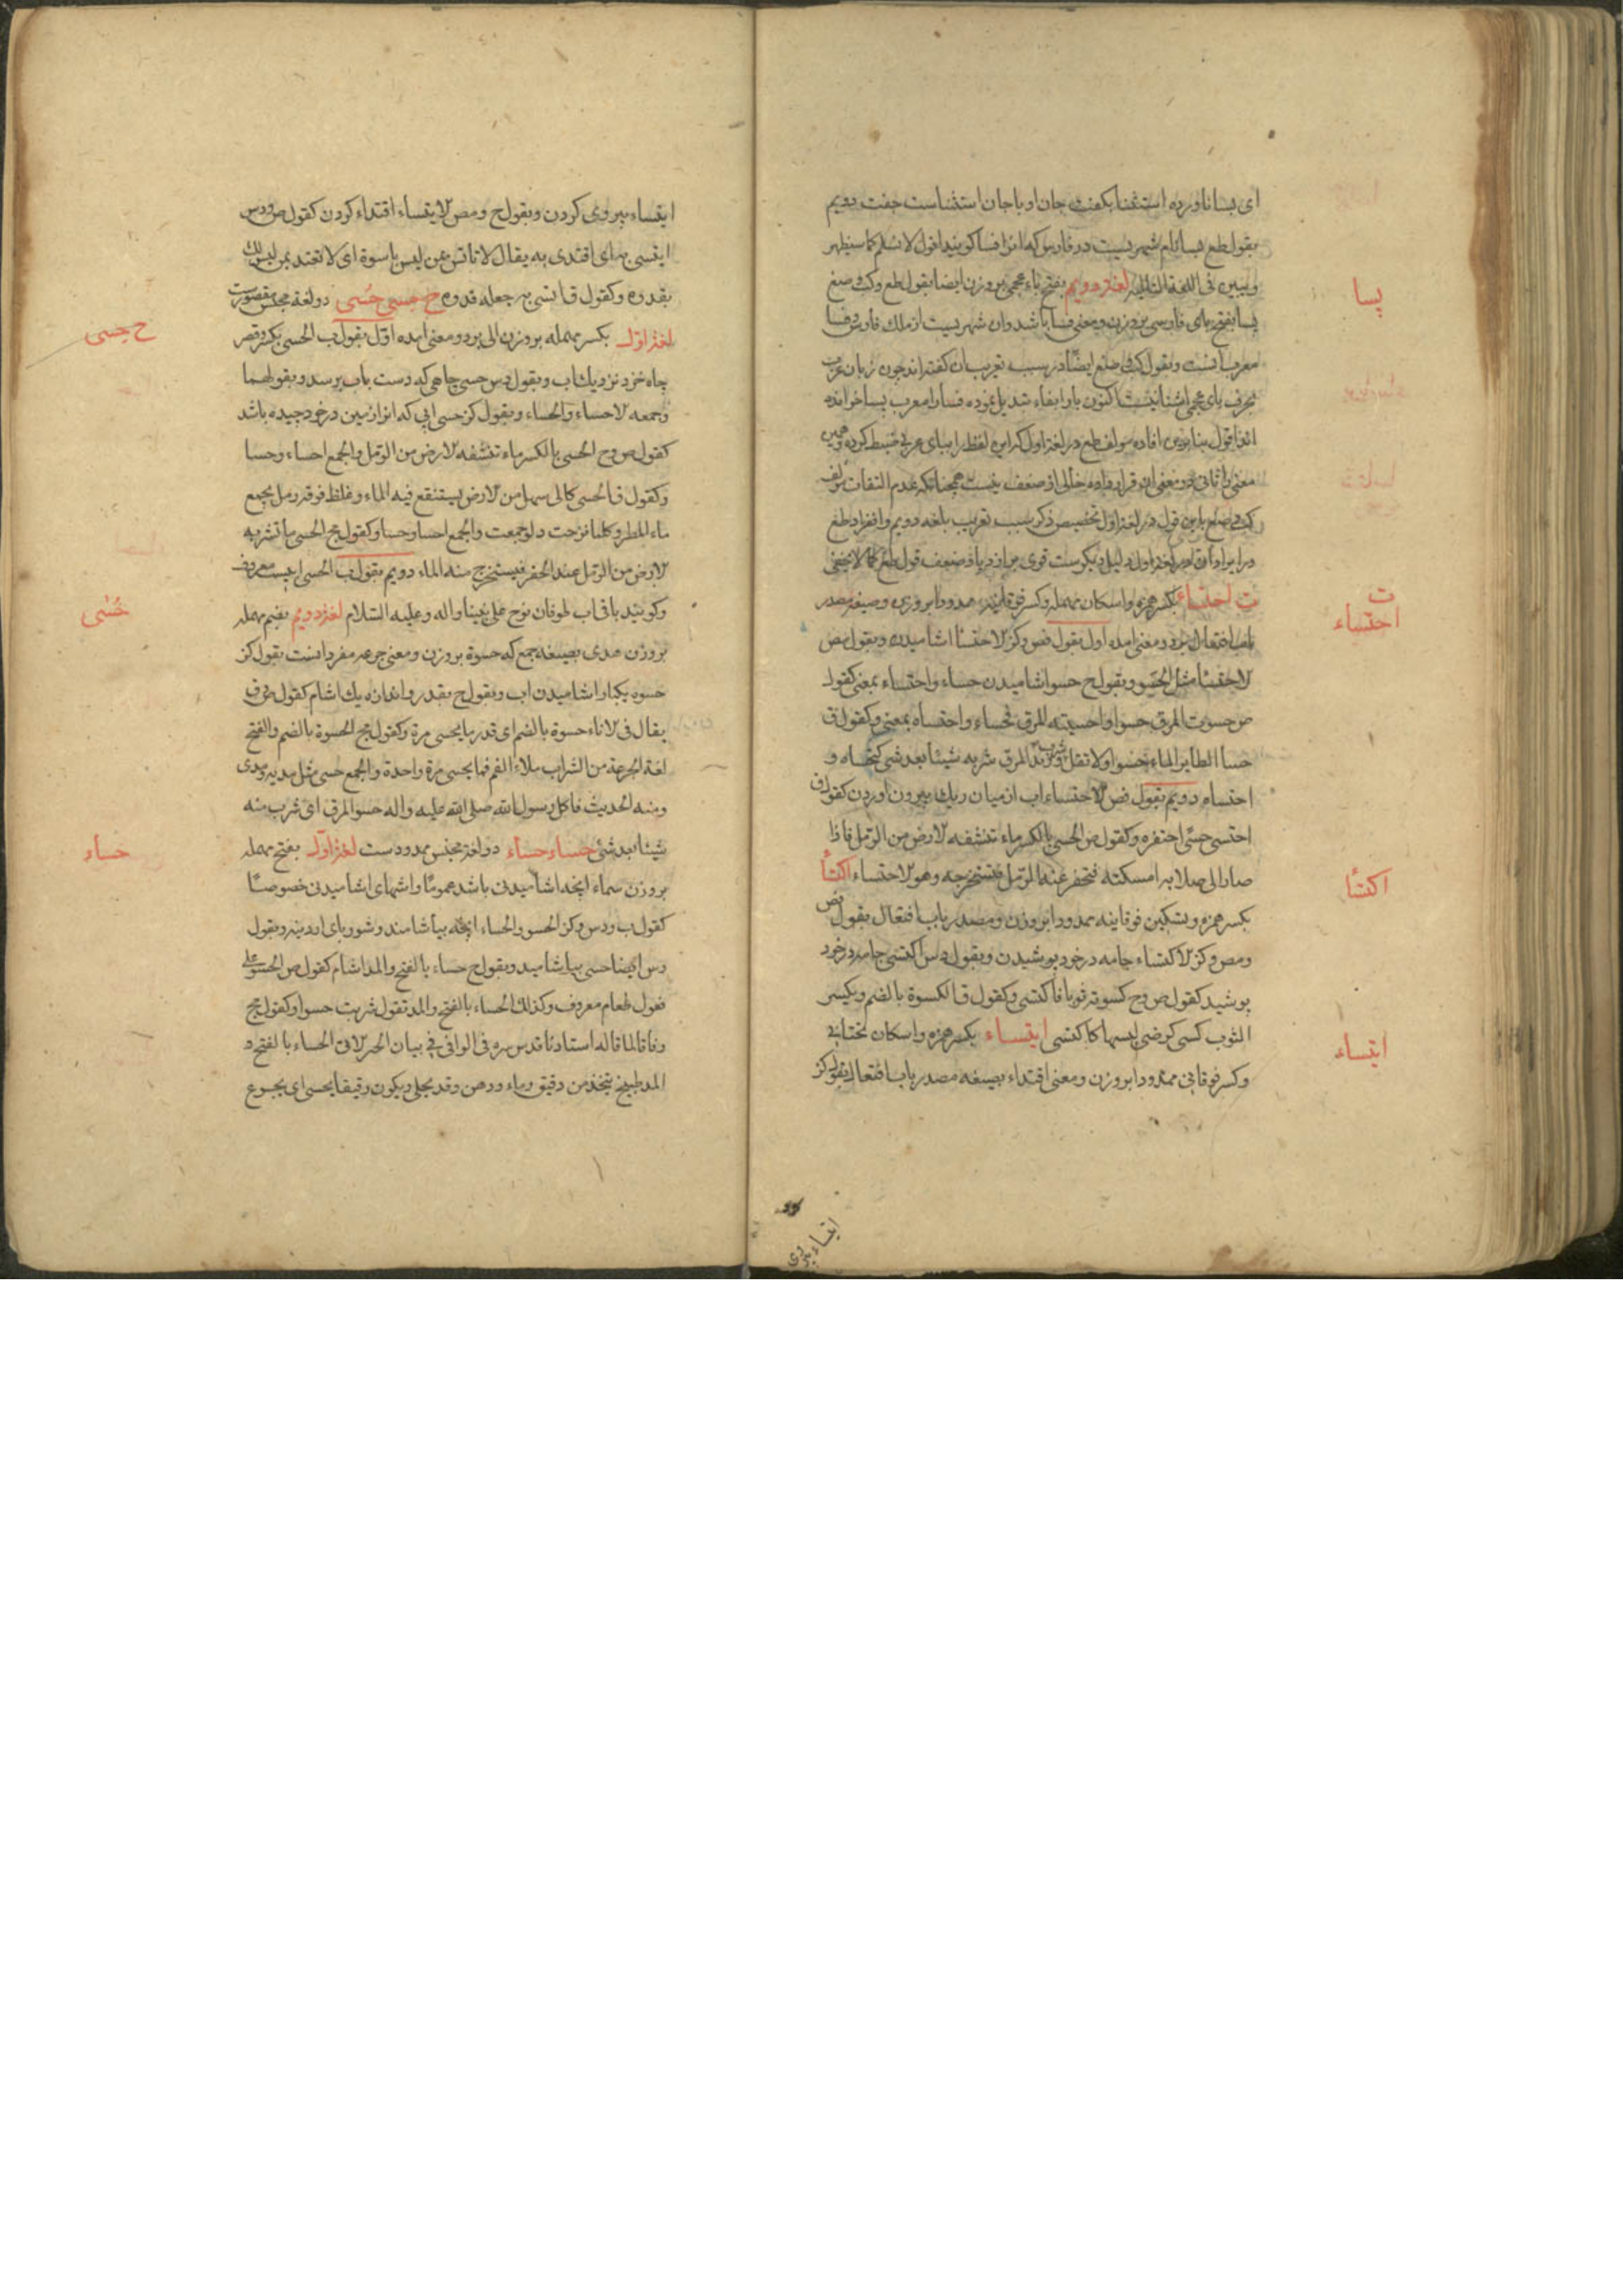 ای بسا ناورده استثنا بگفت جان او با جان استثناست جفت دویم
بقول طع بسا نام شهریست در فارس که انرا فسا کویند اقول لا نسلم کما سیظهر
لغة دویم بفتح باء عجمی بروزن ایضا بقول طع وکف وصغ
پسا
پسا بفتح بای فارسی بروزن ومعنی فسا باشد وان شهریست از ملک فارس وفسا
معرب انست وبقول کف وصلغ ایضًا در سبب تعریب ان کفته اند چون زبان عرب
بحرف بای عجمی اشنا نیست کنون با را بفاء تبدیل نموده فسا را معرب پسا خوانده
اند اقول بنابرین افاده مولف طع در لغة اول که این لفظ را ببای عربی ضبط کرده وهمین
معنی را ثانی دو معنی ان قرار داده خالی از ضعف نیست همچنانکه عدم التفات مولف
قول در لغة اول تخصیص ذکر سبب تعریب بلغه دویم
در لغة اول دلیل دیکرست قوی بر ازدیاد ضعف قول طع کما لا یخفی
ت احتساء بکسر همزه واسکان مهمله وکسر فوقانیه ممدودا بروزن وصیغه مصدر
ت
احتساء
باب افتعال بر دو معنی امده اول بقول فض وکز لاحتسا اشامیدن وبقول مص
لاحتسا مثل الحسو وبقول ح حسو اشامیدن حساء واحتساء بمعنی کقول
ص حسوت المرق حسوا واحسیته المرق فحساه واحتساه بمعنی وکقول ق
حسا الطایر الماء حسوا ولا تقل شرب وزید المرق شربه شیئا بعد شئ کتحساه و
احتساه دویم بقول فض لاحتساء اب از میان ریک بیرون اوردن کقول ق
احتسی حسی احتفره وکقول ص الحسی بالکسر ماء تنشفه لارض من الرمل فاذا
صار الی صلابه امسکته فتحفر عنه الرمل فتستخرجه وهو لاحتساء اکتسأ
اکتسأ
بکسر همزه وتسکین فوقانیه ممدودا بروزن ومصدر باب افتعال بقول فض
ومص وکز لاکتساء جامه در خود پوشیدن وبقول دس اکتسی جامه در خود
پوشید کقول ص وح کسوته ثوبا فاکتسی وکقول ق الکسوة بالضم ویکسر
الثوب کسی کرضی لبسها کاکتسی ایتساء بکسر همزه واسکان تحتانی
ایتساء
وکسر فوقانی ممدودا بروزن ومعنی اقتداء بصیغه مصدر باب افتعال بقول کز
ایتساء پیروی
ایتساء پیروی کردن وبقول ح ومص لایتساء اقتداء کردن کقول ص ودس
ایتسی به ای اقتدی به یقال لا تأتس بمن لیس باسوة ای لا تقتد بمن لیس لک
بقدوه وکقول ق ائتسی به جعله قدوه ح حِسی حُسی دو لغة مجنس مقصورست
لغة اول بکسر مهمله بروزن الی بر دو معنی امده اول بقول ب الحسی بکسر وقصر
ح حِسی
چاه خرد نزدیک اب وبقول دس حسی چاهی که دست باب برسد وبقولهما
وجمعه لاحساء والحساء وبقول کز حسی ابی که انرا زمین در خود چیده باشد
کقول ص وح الحسی بالکسر ماء تنشفه لارض من الرمل والجمع احساء وحسا
وکقول ق الحسی کالی سهل من لارض یستنقع فیه الماء وغلظ فوقه رمل یجمع
ماء المطر وکلما نزحت دلو جمعت والجمع احسا وحسا وکقول مج الحسی ما تشربه
لارض من الرمل عند الحفر فیستخرج منه الماء دویم بقول ب الحسی ابیست معروف
وکویند باقی اب طوفان نوح علی نبینا واله وعلیه السلام لغة دویم بضم مهمله
حُسٰی
بروزن هدی بصیغه جمع که حسوة بروزن ومعنی جرعه مفرد انست بقول کز
حسوه یکبار اشامیدن اب وبقول ح بقدر واندازه یک اشام کقول ص ق
یقال فی لاناء حسوة بالضم ای قدر ما یحسی مرة وکقول مج الحسوة بالضم والفتح
لغة الجرعة من الشراب ملاء الفم مما یحسی مرة واحدة والجمع حسی مثل مدیه ومدی
ومنه الحدیث فاکل رسول الله صلی الله علیه واله حسو المرق ای شرب منه
شیئا بعد شئ حساء حساء دو لغة مجنس ممدودست لغة اول بفتح مهمله
حساء
بروزن سماء انچه اشامیدنی باشد عمومًا واشهای اشامیدنی خصوصًا
کقول ب ودس وکز الحسو والحساء انچه بیاشامند وشوربای اردینه وبقول
دس ایضا حسی بیاشامید وبقول ح حساء بالفتح والمد اشام کقول ص الحسو علی
فعول طعام معروف وکذلک الحساء بالفتح والمد تقول شربت حسوا وکقول مج
وفاقا لما قاله استادنا قدس سره فی الوافی فی بیان الخبر لاتی الحساء بالفتح و
المد طبیخ یتخذ من دقیق وماء ودهن وقد یحلی ویکون رقیقا یحسی ای یجرع